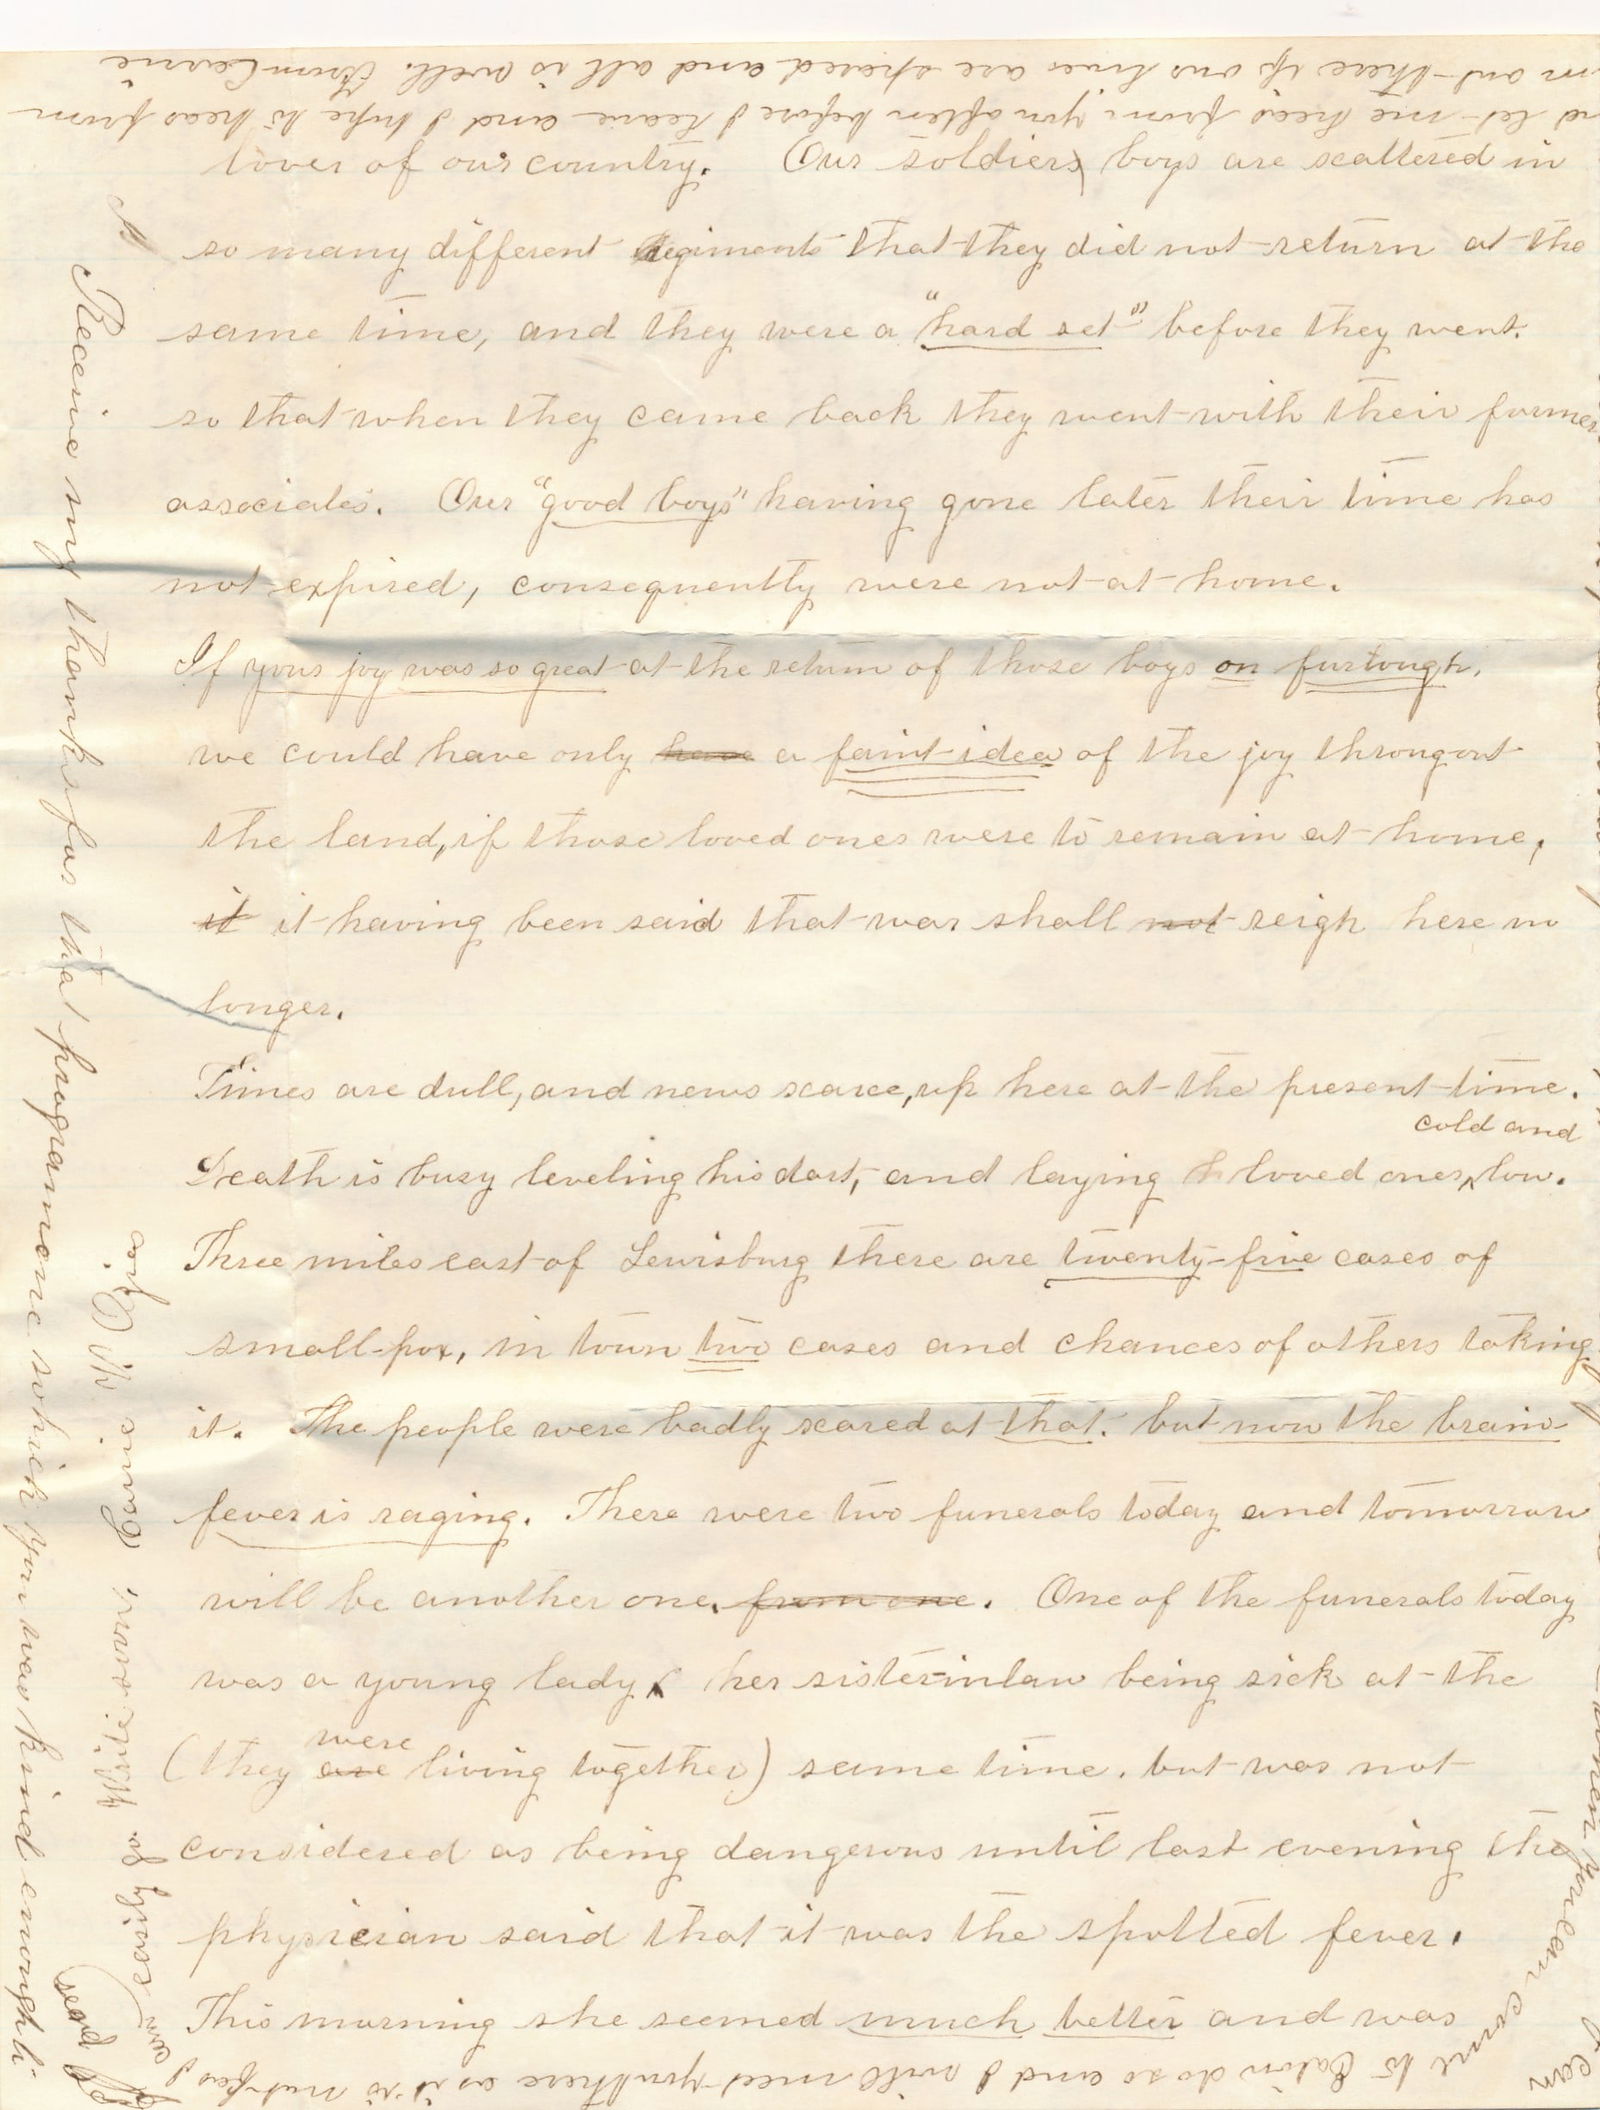 lover of our country. Our soldiers boys are scattered in
so many different regiments that they did not return at the
same time, and they were a "hard set" before they went.
so that when they came back they went with their former
associates. Our "good boys" having gone later their time has
not expired, consequently were not at home.
If your joy was so great at the return of those boys on furlough,
we could have only have a faint idea of the joy througout
the land, if those loved ones were to remain at home,
it it having been said that war shall not reigh here no
longer.
Times are dull, and news scarce, up here at the present time.
cold and
Death is busy leveling his dart, and laying loved ones, low.
Three miles east of Lewisburg there are twenty-five cases of
small-pox, in town two cases and chances of others taking
it. The people were badly scared at that. but now the brain
fever is raging. There were two funerals today and tomorrow
will be another one, from one. One of the funerals today
was a young lady, her sister-inlaw being sick at the
were
(they are living together) same time. but was not
considered as being dangerous until last evening the
physician said that it was the spotted fever.
This morning she seemed much better and was
to Eaton do so and I will meet you there as it is not far I
can easily go. Write soon,
Receive my thanks for that programme which you was kind enough to
send
when you can come
m and there if our lives are spared and all is well.
let me hear from you often before I leave and I hope to hear from